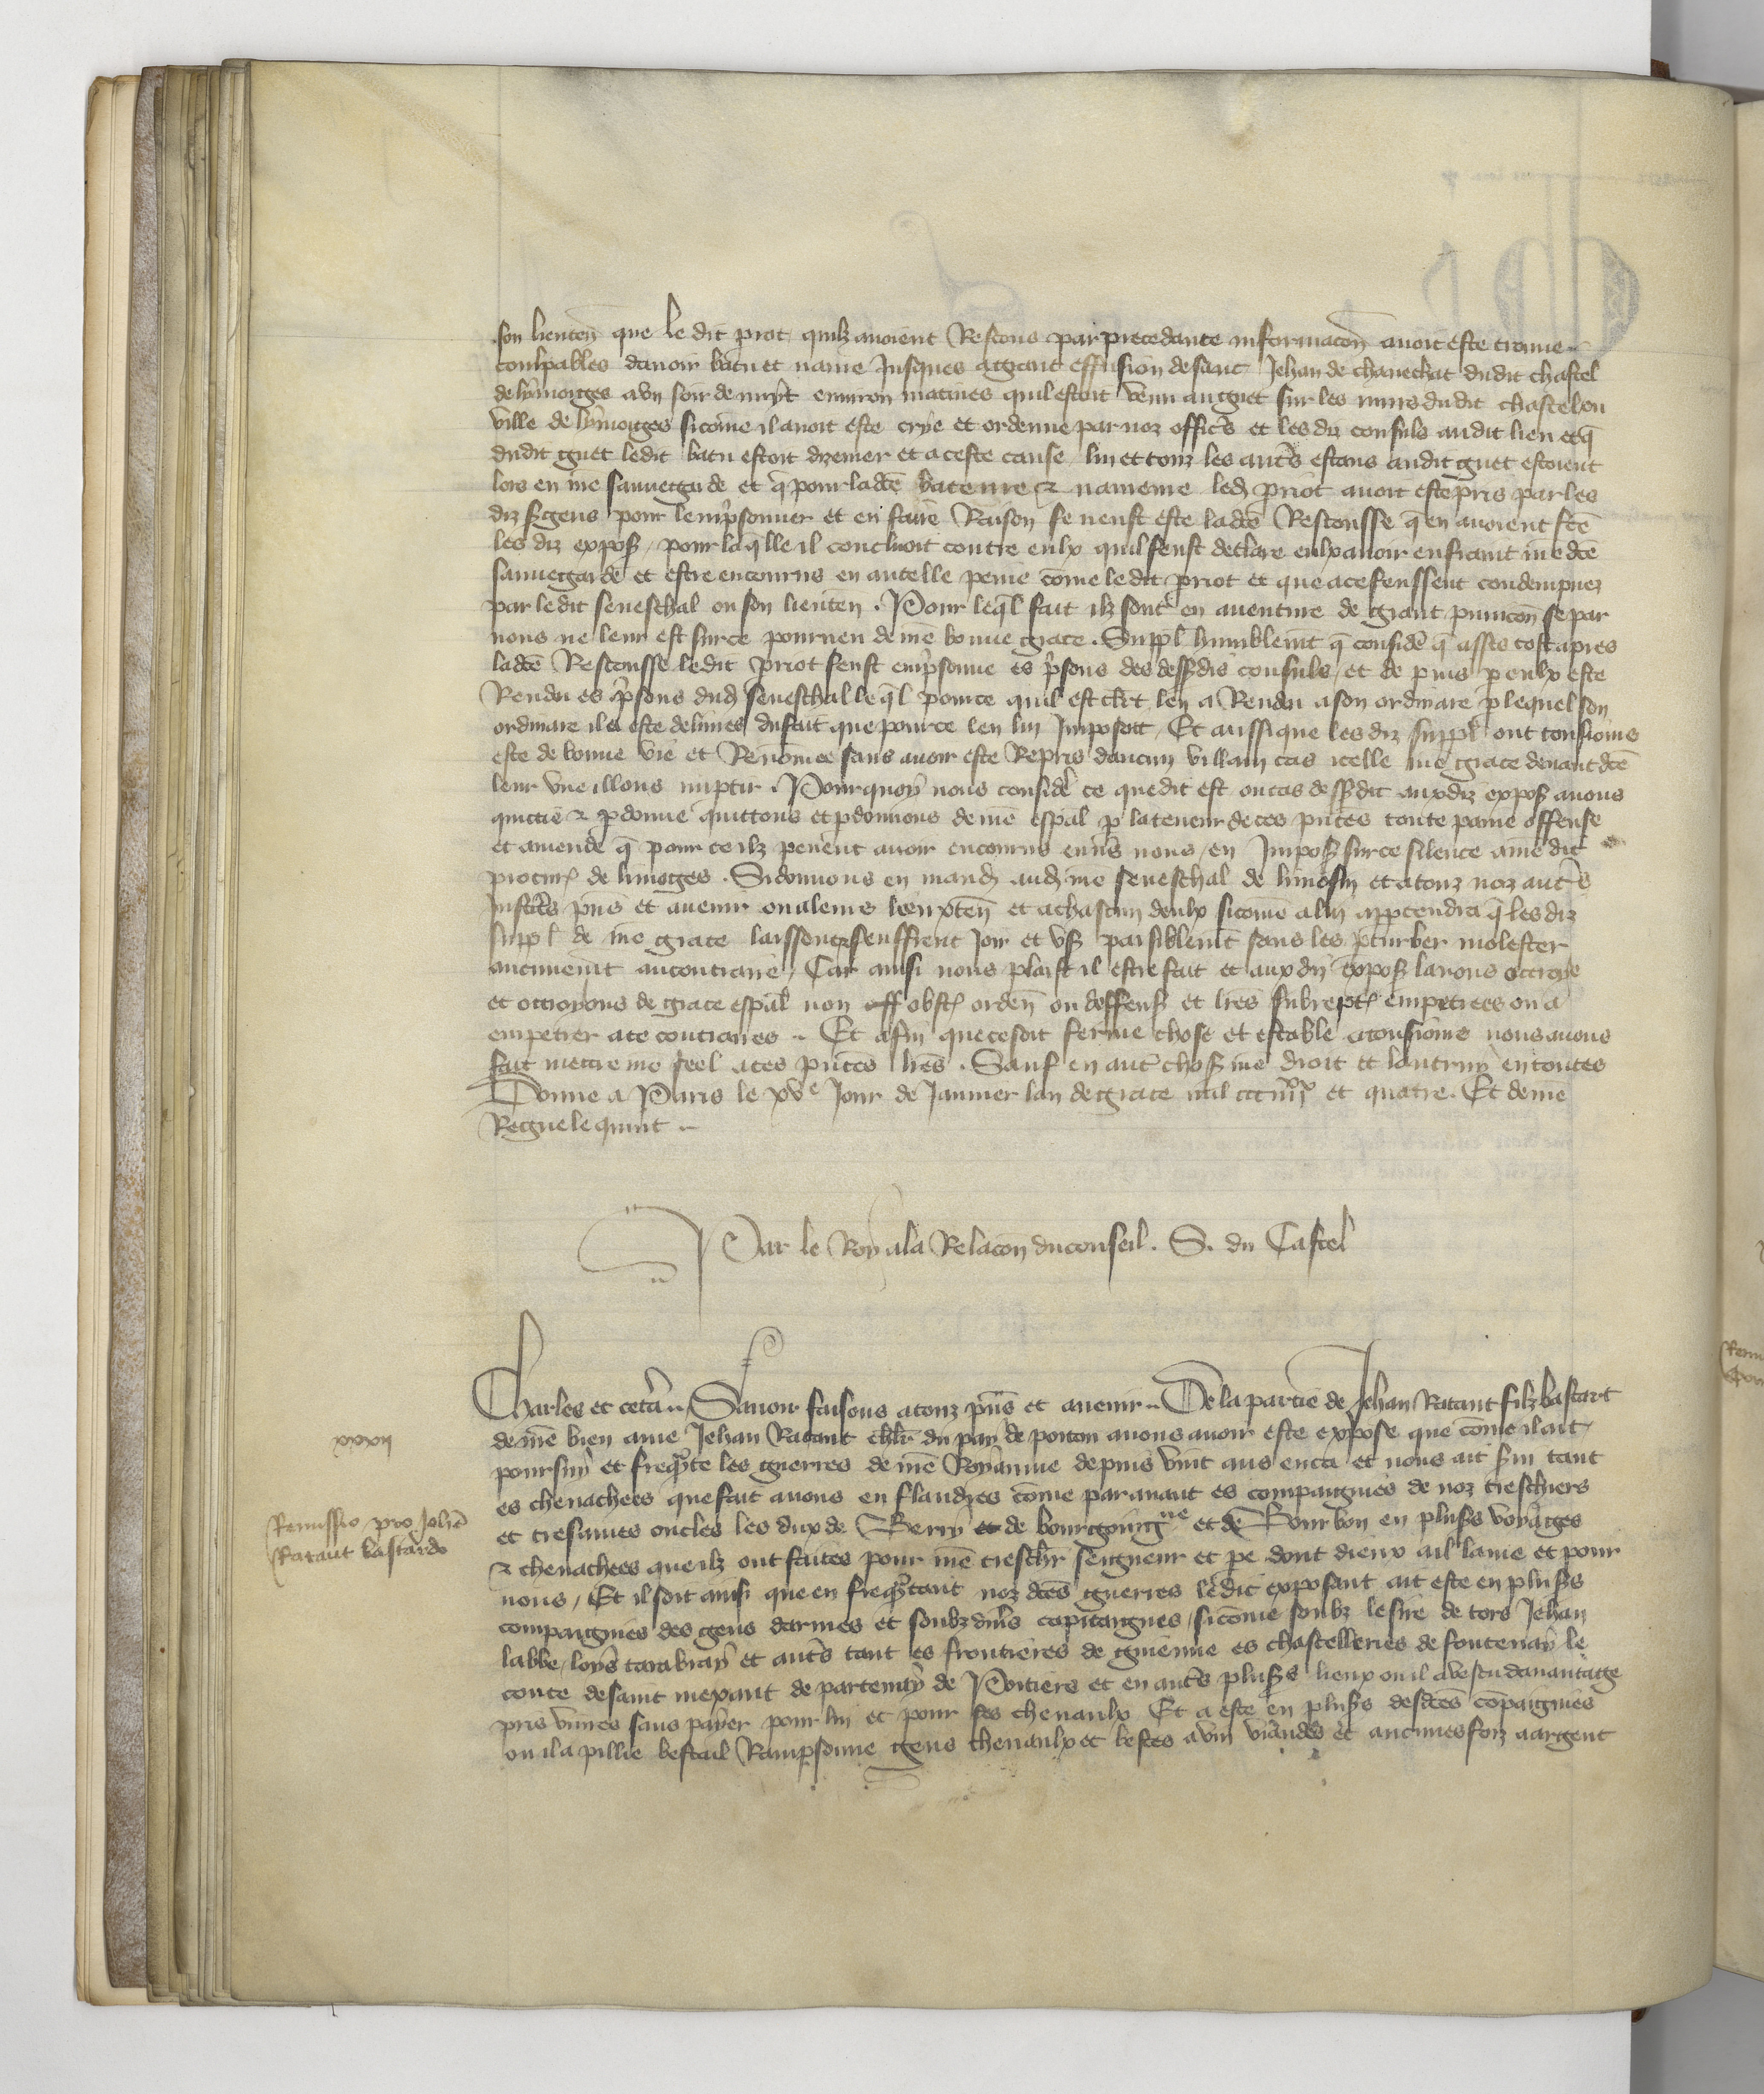 son lieuten̄ que le dit priot quilz auoient Rescous par precedante informacōn auoit este trouue
coulpables dauoir batu et naure Jusques a grant effusion de sanc Jehan de chanechat dudit chastel
de lymoiges a vn soir de nuyt enuiron matines quil estoit venu au guet sur les murs dudit chastel ou
ville de lymoiges sicōme il auoit este crye et ordenne par noz offic̄s et les diz consuls audit lieu et q̄
dudit guet ledit batu estoit dizenier et a ceste cause lui et touz les aut̄s estans audit guet estoient
lors en nr̄e sauuegarde et q̄ pour lad̄ce bateure & naureure led̄ priot auoit este pris par les
diz sgens pour lemp̄sonner et en faire Raison se neust este lad̄ce Rescousse q̄ en auoient fc̄e
les diz expos̄ / pour laq̄lle il concluoit contre eulx quil feust declare eulx auoir enfraint nr̄e dc̄e
sauuegarde et estre encourus en autelle peine cōme le dit priot et que a ce feussent condempnez
par le dit seneschal ou son lieuten̄ . Pour leq̄l fait ilz sont en auenture de grant punicōn se par
nous ne leur est sur ce pourueu de nr̄e bonne grace . Suppl̄ humblemn̄t q̄ consider̄ q̄ asses tost apres
lad̄ce Rescousse ledit priot feust emp̄sonne es p̄sons des dess̄dis consuls / et de puis p eulx este
Rendu es p̄sons dud̄ seneschal leq̄l pour ce quil est clert len a Rendu a son ordinaire p lequel son
ordinaire il a este deliures du fait que pour ce len lui Imposoit / Et aussi que les diz suppl̄ ont tousiours
este de bonne vie et Renōmee sans auoir este Repris daucun villain cas icelle nr̄e grace deuant dc̄e
leur vueillons imptir . Pourquoy nous consider̄ ce que dit est ou cas dess̄dit aux diz expos̄ auons
quictie & pdonne quittons et pdonnons de nr̄e esp̄al p la teneur de ces pn̄tes toute paine offense
et amende q̄ pour ce ilz peuent auoir encouru enūs nous / en Impos̄ sur ce silence a nr̄e dit
procur̄ de limoiges . Si donnons en mand̄ aud̄ nr̄e seneschal de limosin et a touz noz aut̄s
Justic̄s pn̄s et auenir ou a leurs lieuxten̄ et a chascun deulx sicōme a lui appartendra q̄ les diz
suppl̄ de nr̄e grace laissent & seuffrent Joir et vs̄ paisiblemn̄t sans les pturber molester
aucunemn̄t au contraire / Car ainsi nous plaist il estre fait et aux diz expos̄ lauons octroye
et octroyons de grace esp̄al non obst̄ orden̄ ou deffens̄ et lr̄es subrept̄ empetrees ou a
empetrer a ce contraires .. Et afin que ce soit ferme chose et estable a tousiours nous auons
fait mettre nr̄e seel a ces pn̄tes lr̄es . Sauf en aut̄ chos̄ nr̄e droit et lautruy en toutes
Donne a Paris le xve Jour de Januier lan de grace mil ccc iiiixx et quatre . Et de nr̄e
Regne le quint ..
Par le Roy a la Relacōn du conseil . S. du Castel
Charles et cetera .. Sauoir faisons a touz pn̄s et auenir .. De la partie de Jehan Rataut filz bastart
de nr̄e bien ame Jehan Rataut chlr̄ du pays de poitou auons auoir este expose que cōme il ait
poursuy et freq̄nte les guerres de nr̄e Royaume depuis vint ans enca et nous ait sui tant
es cheuachees que fait auons en flandres cōme parauant es compaignies de noz treschiers
et tresames oncles les dux de Berry et de bourgoingne et de Bourbon en plus̄s voyages
& cheuachees que ilz ont faites pour nr̄e treschr̄ seigneur et pe dont dieux ait lame et pour
nous / Et il soit ainsi que en freq̄ntant noz dc̄es guerres le dit exposant ait este en plus̄s
compaignies des gens darmes et soubz diūs capitaignes / sicōme soubz le sire de tors Jehan
labbe / loys tarabray et aut̄s tant es frontieres de guienne es chastelleries de fontenay le
conte de saint mexant de partenay de Poitiers et en aut̄s plus̄s lieux ou il a vescu dauantatge
pris viures sans paier pour lui et pour ses cheuaulx Et a este en plus̄s desdc̄es cōpaignies
ou il a pillie bestail Rampsonne gens cheuaulx et bestes a vin viandes et aucunes foiz a argent
xxxij
Remissio pro Joh̄e
Rataut bastardo